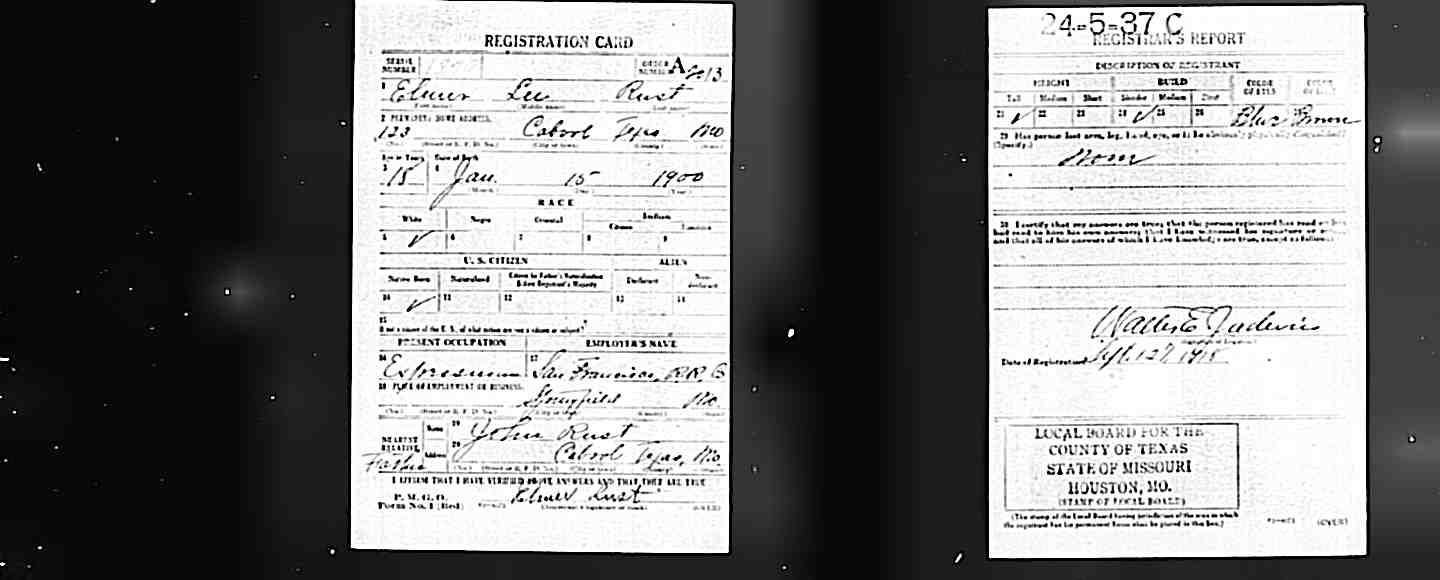 REGISTRATION CARD
SERIAL NUMBER
ORDER NUMBER A 13
1 Elmer Lee Rust
(First name) (Middle name) (Last name)
2 PERMANENT HOME ADDRESS:
123 Cabool Texas Mo
(No.) (Street or R. F. D. No.) (City or town) (County) (State)
Age in Years Date of Birth
3 18 4 Jan. 15 1900
(Month.) (Day.) (Year.)
RACE
White Negro Oriental Indian
Citizen
5 ✓ 6 7 8 9
U. S. CITIZEN ALIEN
Native Born Naturalized Citizen by Father's Naturalization Before Registrant's Majority Declarant Non-declarant
10 ✓ 11 12 13 14
15
If not a citizen of the U. S., of what nation are you a citizen or subject?
PRESENT OCCUPATION EMPLOYER'S NAME
16 17 San Francisco, R.R. Co
18 PLACE OF EMPLOYMENT OR BUSINESS:
Springfield Mo.
(No.) (Street or R. F. D. No.) (City or town) (County) (State)
NEAREST RELATIVE
Name 19 John Rust
Address 20 Cabool Texas, Mo.
Father (No.) (Street or R. F. D. No.) (City or town) (County) (State)
I AFFIRM THAT I HAVE VERIFIED ABOVE ANSWERS AND THAT THEY ARE TRUE
P. M. G. O.
Form No. 1 (Red) Elmer Rust
(Registrant's signature or mark) (OVER)
24-5-37 C
REGISTRAR'S REPORT
DESCRIPTION OF REGISTRANT
HEIGHT BUILD COLOR OF EYES COLOR OF HAIR
Tall Medium Short Slender Medium Stout
21 ✓ 22 23 24 ✓ 25 26 Blue Brown
29 Has person lost arm, leg, hand, eye, or is he obviously physically disqualified?
(Specify.)
None
30 I certify that my answers are true; that the person registered has read or has
had read to him his own answers; that I have witnessed his signature or mark,
and that all of his answers of which I have knowledge are true, except as follows:
Walter E
Date of Registration Sept. 12, 1918
LOCAL BOARD FOR THE
COUNTY OF TEXAS
STATE OF MISSOURI
HOUSTON, MO.
(STAMP OF LOCAL BOARD)
(The stamp of the Local Board having jurisdiction of the area in which
the registrant has his permanent home shall be placed in this box.)
(OVER)